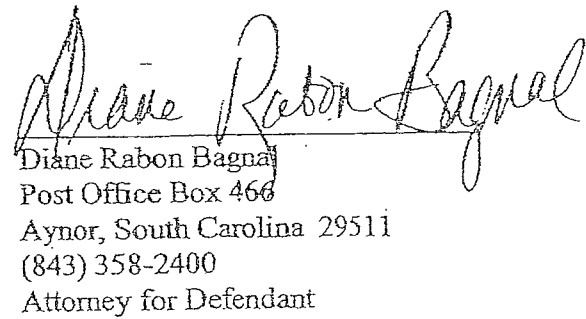 Diane Rabon Bagnal
Diane Rabon Bagnal
Post Office Box 466
Aynor, South Carolina 29511
(843) 358-2400
Attorney for Defendant